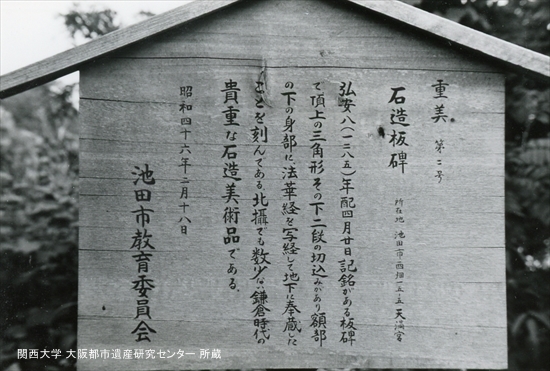 重美 第二号
石造板碑
所在地 池田市西畑一五ノ五 天満宮
弘安八(一二八五)年配四月廿日記銘がある板碑
で頂上の三角形その下二段の切込みがあり額部
の下の身部に、法華経を写経して地下に奉蔵した
ことを刻んである。北摂でも数少ない鎌倉時代の
貴重な石造美術品である。
昭和四十六年二月十八日
池田市教育委員会
関西大学 大阪都市遺産研究センター 所蔵